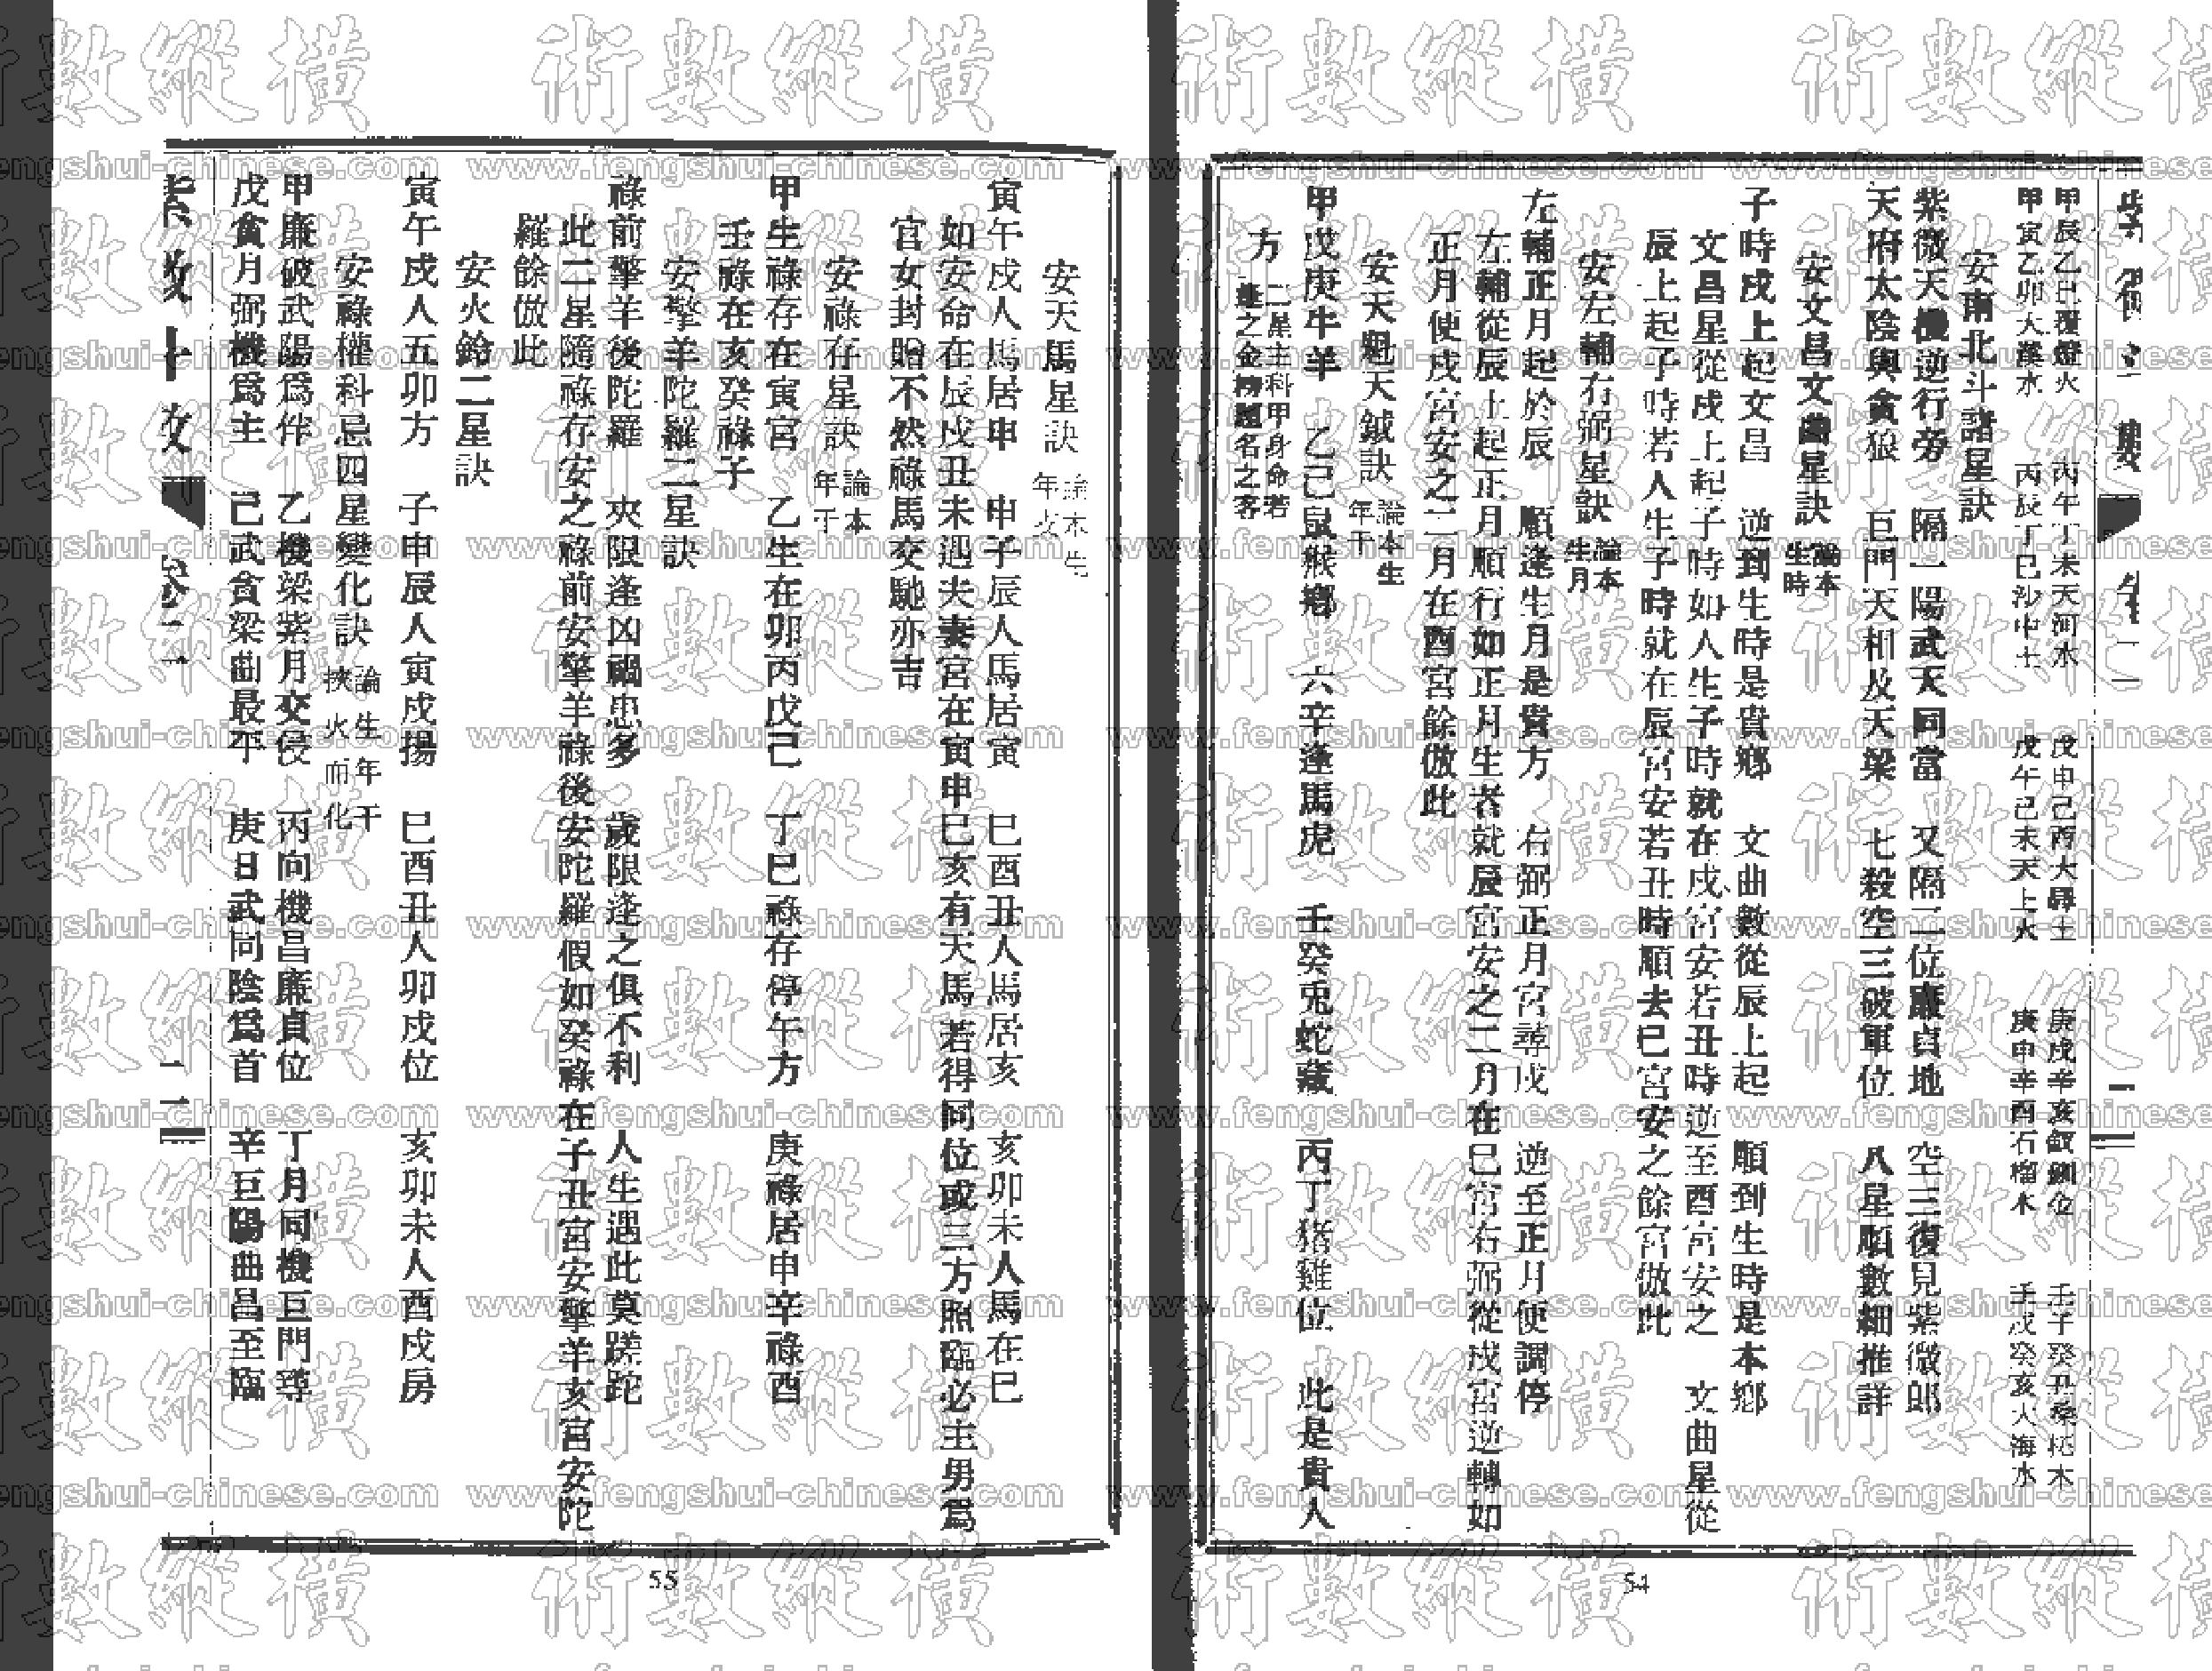 甲辰乙巳覆燈火 丙午丁未天河水 戊申己酉大驛土 庚戌辛亥釵釧位 壬子癸丑桑柘木
甲寅乙卯大溪水 丙辰丁巳沙中土 戊午己未天上火 庚申辛酉石榴木 壬戌癸亥大海水
安南北斗諸星訣
紫微天機逆行旁 隔一陽武天同當 又隔二位廉貞地 空三復見紫微郎
天府太陰與貪狼 巨門天相及天梁 七殺空三破軍位 八星順數細推詳
安文昌文曲星訣 論本生時
子時戌上起文昌 逆到生時是貴鄉 文曲數從辰上起 順到生時是本鄉
文昌星從戌上起子時如人生子時就在戌宮安若丑時逆至酉宮安之 文曲星從
辰上起子時若人生子時就在辰宮安若丑時順去巳宮安之餘宮倣此
安左輔右弼星訣 論本生月
左輔正月起於辰 順逢生月是貴方 右弼正月宮尋戌 逆至正月便調停
左輔從辰上起正月順行如正月生者就辰宮安之二月在巳宮右弼從戌宮逆轉如
正月便戌宮安之二月在酉宮餘倣此
安天魁天鉞訣 論本生年干
甲戊庚牛羊 乙己鼠猴鄉 六辛逢馬虎 壬癸兎蛇藏 丙丁猪雞位 此是貴人
方 二星主科甲身命若逢之金榜題名之客
54
安天馬星訣 論本生年支
寅午戌人馬居申 申子辰人馬居寅 巳酉丑人馬居亥 亥卯未人馬在巳
如安命在辰戌丑未遇夫妻宮在寅申巳亥有天馬若得同位或三方照臨必主男爲
官女封贈不然祿馬交馳亦吉
安祿存星訣 論本年干
甲生祿存在寅宮 乙生在卯丙戊己 丁巳祿存停午方 庚祿居申辛祿酉
壬祿在亥癸祿子
安擎羊陀羅二星訣
祿前擎羊後陀羅 夾限逢凶禍患多 歲限逢之俱不利 人生遇此莫蹉跎
此二星隨祿存安之祿前安擎羊祿後安陀羅假如癸祿在子丑宮安擎羊亥宮安陀
羅餘倣此
安火鈴二星訣
寅午戌人五卯方 子申辰人寅戌揚 巳酉丑人卯戌位 亥卯未人酉戌房
安祿權科忌四星變化訣 論生年干挾火而化
甲廉破武陽爲伴 乙機梁紫月交侵 丙同機昌廉貞位 丁月同機巨門尋
戊貪月弼機爲主 己武貪梁曲最平 庚日武同陰爲首 辛巨陽曲昌至臨
55
術數縱橫
www.fengshui-chinese.com